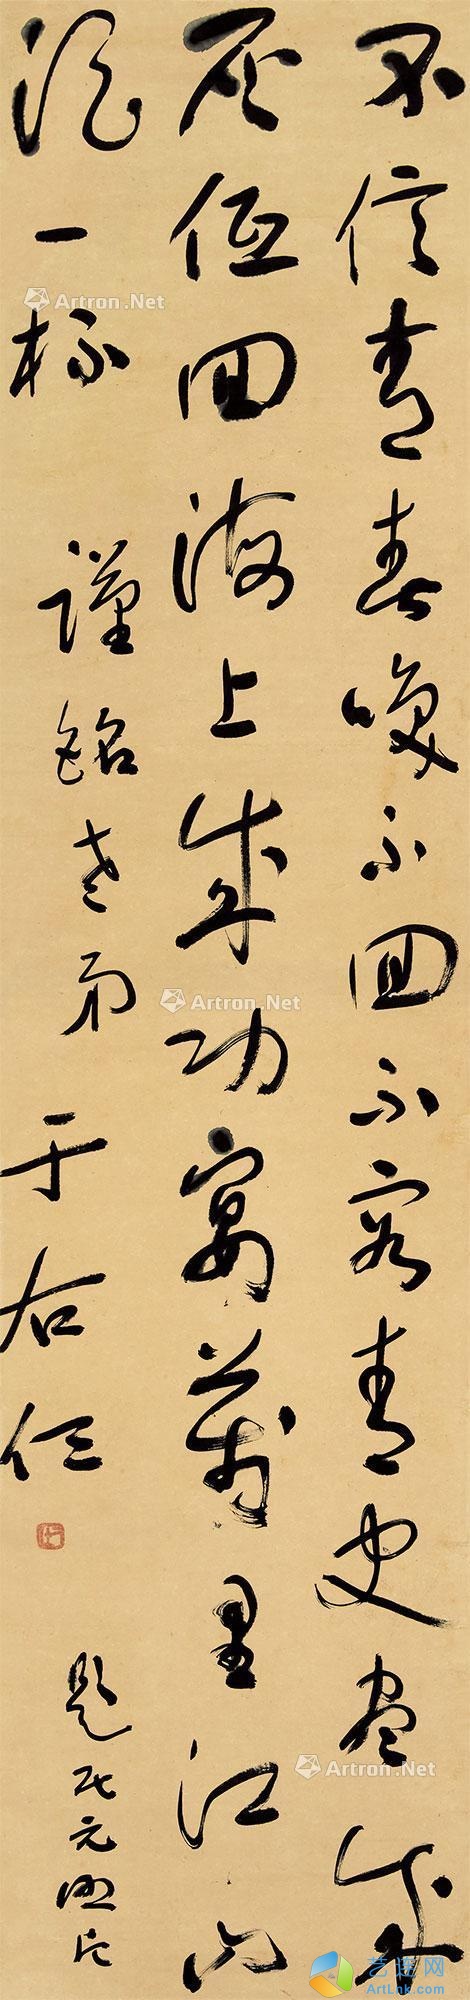 不信青春喚不回不容青史盡成
灰低回海上成功宴萬里江山
酒一杯
謹銘老弟
于右任
題民元照片
Artron.Net
Artron.Net
Artron.Net
艺连网
ArtLink.com